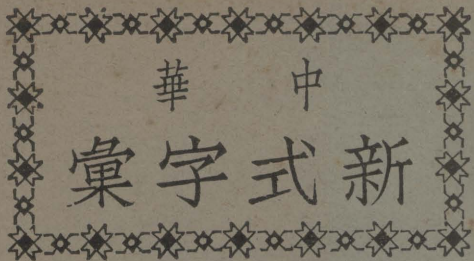 中華
新式字彙